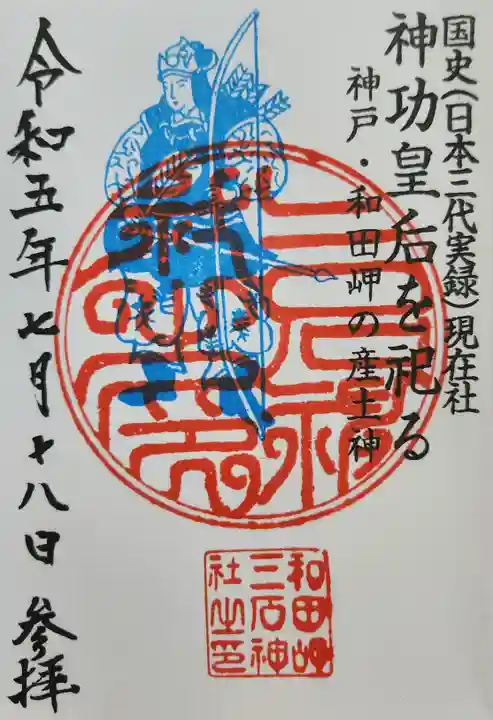 国史(日本三代実録)現在社
神功皇后を祀る
神戸・和田岬の産土神
三石神
令和五年七月十八日 参拝
和田岬
三石神
社之印